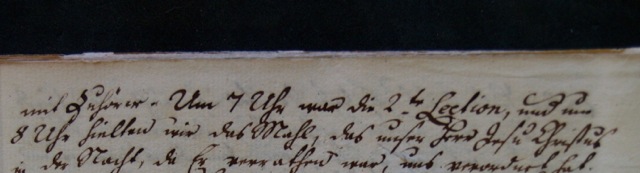 mit Zuhörer. Um 7 Uhr war die 2te Lection, und um
8 Uhr hielten wir das Mahl, das unser Herr Jesus Christus
in der Nacht, da Er verrathen war, uns verordnet hat.